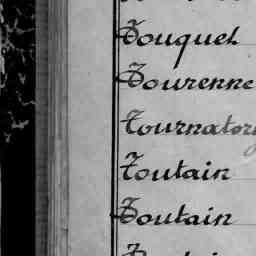 Touquet
Tourenne
Tournatory
Toutain
Toutain